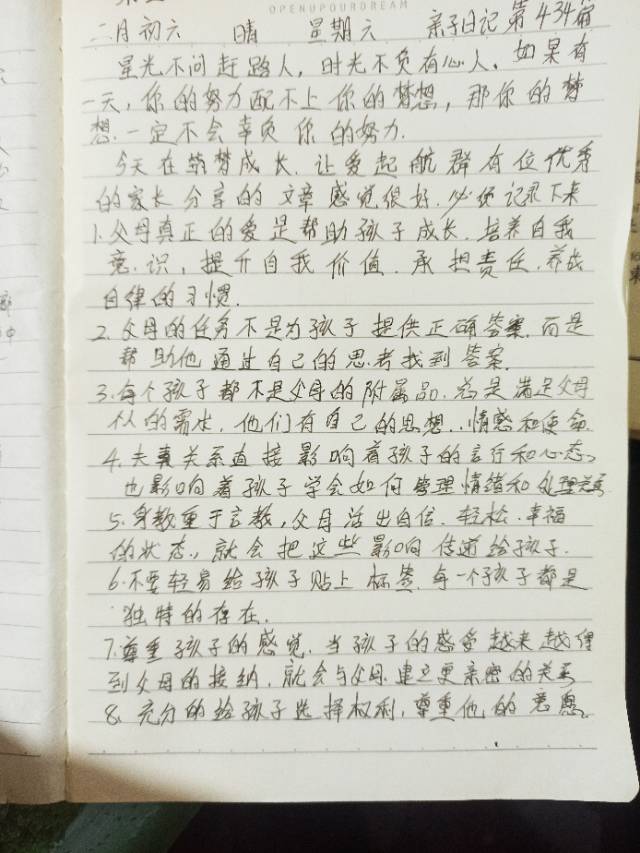 OPENUPOURDREAM
二月初六 晴 星期六 亲子日记第434篇
星光不问赶路人，时光不负有心人，如果有
一天，你的努力配不上你的梦想，那你的梦
想，一定不会辜负你的努力．
今天在筑梦成长．让爱起航群有位优秀
的家长分享的文章感觉很好．必须记录下来
1．父母真正的爱是帮助孩子成长．培养自我
意．识，提升自我价值．承担责任．养成
自律的习惯．
2．父母的任务不是为孩子提供正确答案．而是
帮助他通过自己的思考找到答案．
3．每个孩子都不是父母的附属品．总是满足父母
的需求．他们有自己的思想．．情感和使命．
4．夫妻关系直接影响着孩子的言行和心态，
也影响着孩子学会如何管理情绪和处理关系
5．身教重于言教，父母活出自信．轻松．幸福
的状态，就会把这些影响传递给孩子．
6．不要轻易给孩子贴上标签．每一个孩子都是
独特的存在．
7．尊重孩子的感觉．当孩子的感受越来越得
到父母的接纳，就会与父母建立更亲密的关系
8．充分的给孩子选择权利，尊重他的意愿。